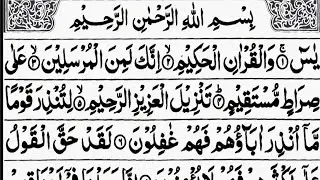 بِسْمِ اللهِ الرَّحْمٰنِ الرَّحِيْمِ
يٰسٓ ۚ﴿۱﴾ وَالْقُرْاٰنِ الْحَكِيْمِ ۙ﴿۲﴾ اِنَّكَ لَمِنَ الْمُرْسَلِيْنَ ۙ﴿۳﴾ عَلٰى
صِرَاطٍ مُّسْتَقِيْمٍ ؕ﴿۴﴾ تَنْزِيْلَ الْعَزِيْزِ الرَّحِيْمِ ۙ﴿۵﴾ لِتُنْذِرَ قَوْمًا
مَّاۤ اُنْذِرَ اٰبَآؤُهُمْ فَهُمْ غٰفِلُوْنَ ﴿۶﴾ لَقَدْ حَقَّ الْقَوْلُ